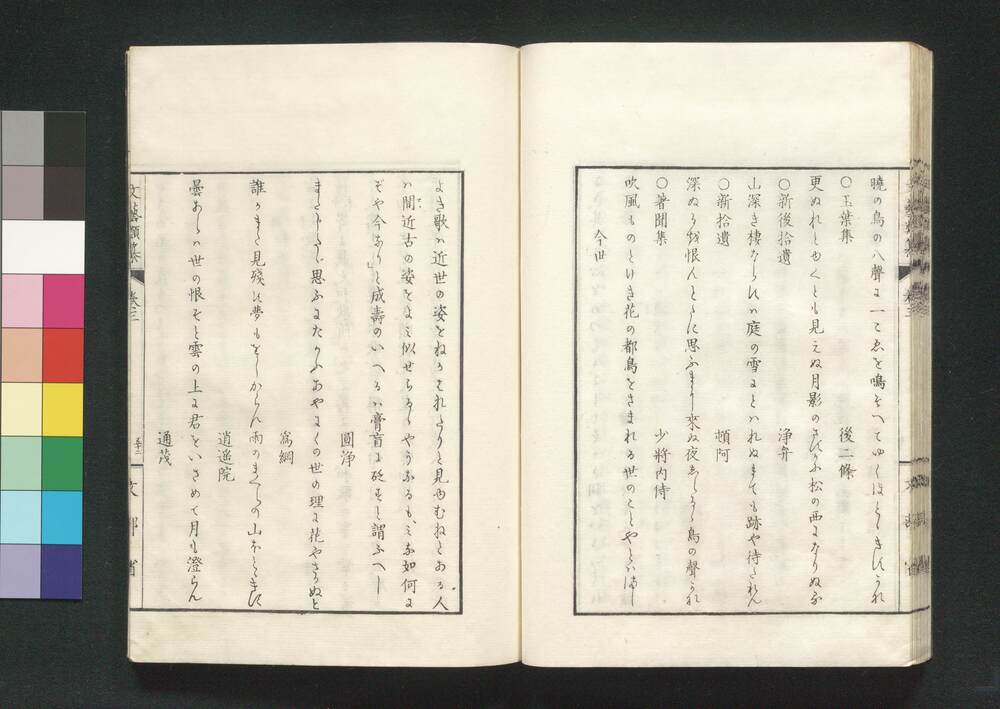 暁の鳥の八聲に一こゑを鳴そへてゆくほとゝきすかな
○玉葉集　後二條
更ぬれとゆくとも見えぬ月影のさすかに松の西になりぬる
○新後拾遺　浄弁
山深き棲なられハ庭の雪にとハれぬまても跡や待たれん
○新拾遺　頓阿
深ぬるを恨んとたに思ふまし来ぬ夜しらるゝ鳥の聲かな
○著聞集　少將内侍
吹風ものとけき花の都鳥をさまれる世のことやとハまし
今世
よき歌ハ近世の姿をねかはれたりと見ゆむねとある人
ハ間近古の姿をよミ似せらるゝやうなるも、ミな如何に
そや今ありと成壽のいへるハ膏肓に砭すと謂ふへし
圓浄
まてしはし思ふにたかふあやにくの世の理に花やさかぬと
為綱
誰かまた見殘す夢もをしからん雨のまくらの山ほとゝきす
逍遥院
曇あらハ世の恨そと雲の上に君をいさめて月も澄らん
通茂
文藝類纂　巻三
五十二
文部省